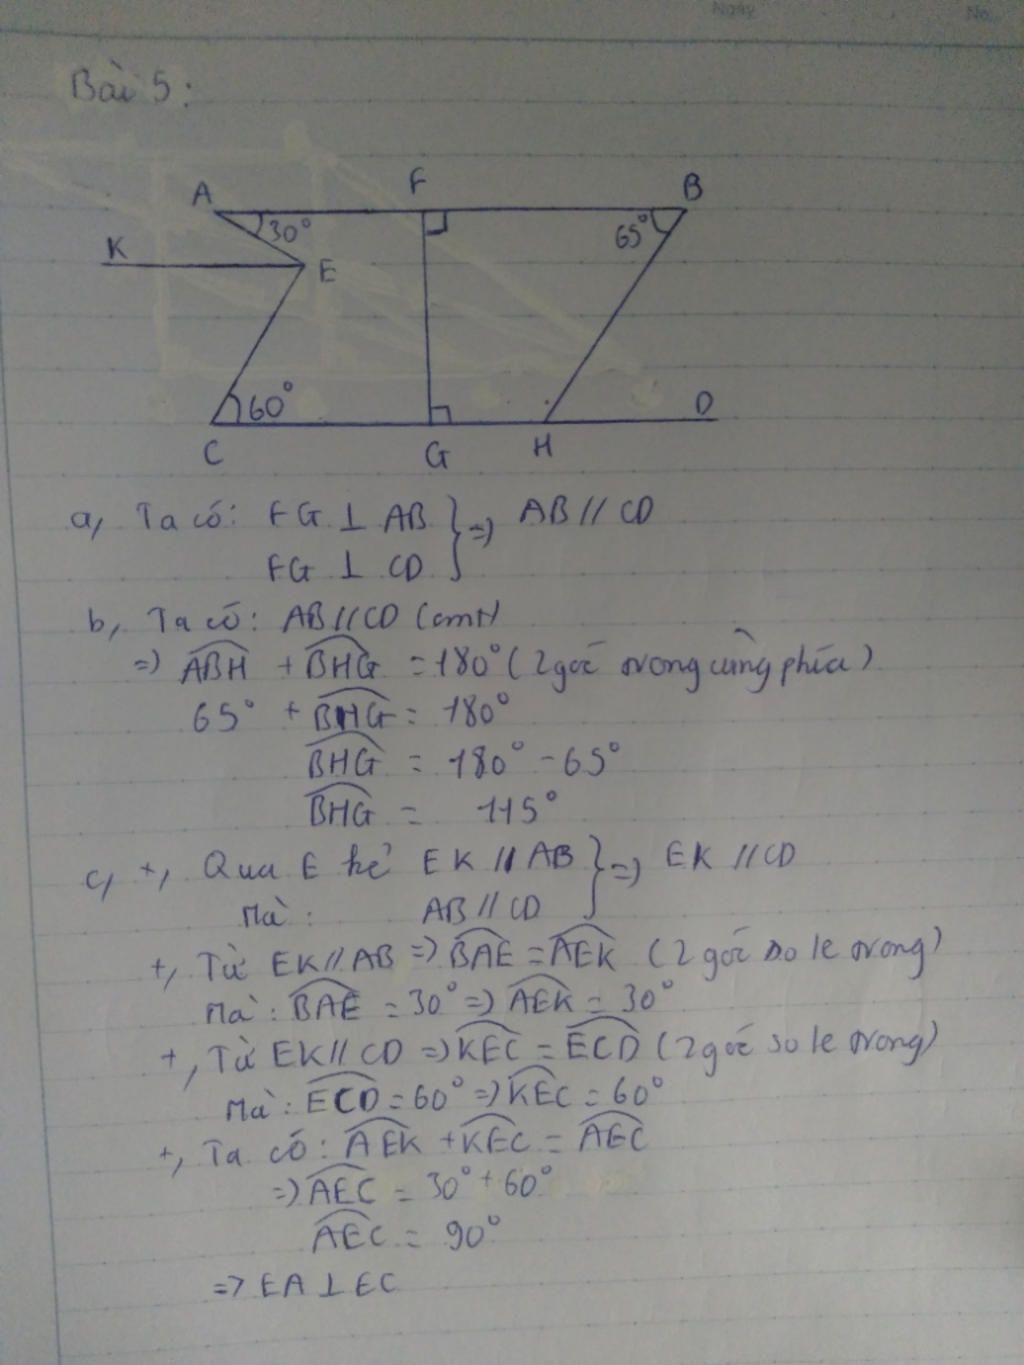 Ngày No.
Bài 5:
A F B
30° 65°
K E
60° D
C G H
a, Ta có: FG ⊥ AB } => AB // CD
FG ⊥ CD
b, Ta có: AB // CD (cmt)
=> ABH + BHG = 180° (2 góc trong cùng phía)
65° + BHG = 180°
BHG = 180° - 65°
BHG = 115°
c, +, Qua E kẻ EK // AB } => EK // CD
Mà: AB // CD
+, Từ EK // AB => BAE = AEK (2 góc so le trong)
Mà: BAE = 30° => AEK = 30°
+, Từ EK // CD => KEC = ECD (2 góc so le trong)
Mà: ECD = 60° => KEC = 60°
+, Ta có: AEK + KEC = AEC
=> AEC = 30° + 60°
AEC = 90°
=> EA ⊥ EC